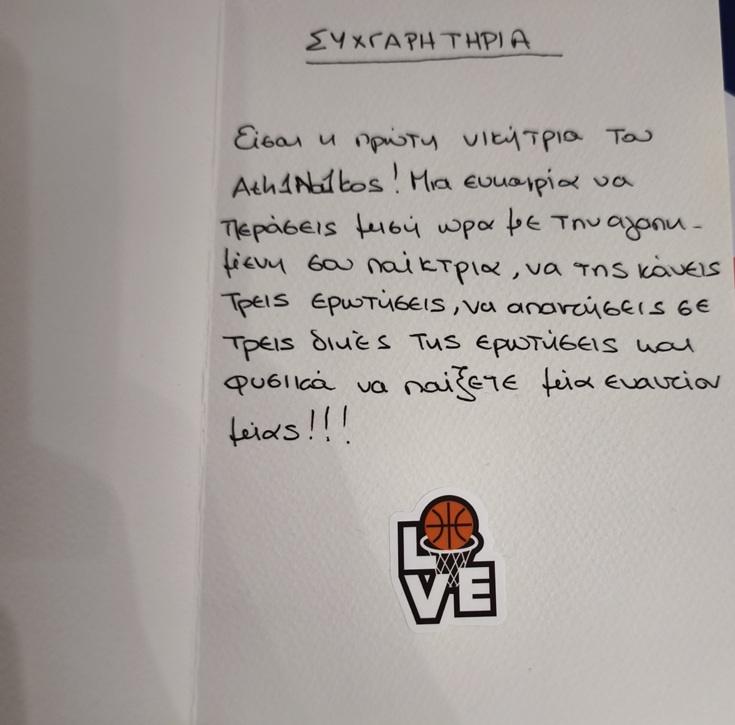 ΣΥΧΓΑΡΗΤΗΡΙΑ
Είσαι η πρώτη νικήτρια του
Ath1Na1kos! Μια ευκαιρία να
περάσεις μισή ώρα με την αγαπη-
μένη σου παίκτρια, να της κάνεις
τρεις ερωτήσεις, να απαντήσεις σε
τρεις δικές της ερωτήσεις και
φυσικά να παίξετε μία εναντίον
μίας!!!
LOVE